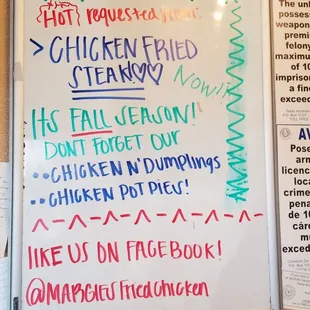 {HOT} requested
> CHICKEN FRIED
STEAK!♡♡
NOW!!
ITS FALL SEASON!
DON'T FORGET OUR
•• CHICKEN N' DUMPLINGS
•• CHICKEN POT PIES!
LIKE US ON FACEBOOK!
@MARGIESFriedChicken
The unl
posses
weapon
premi
felony
maximu
of 10
impriso
a fin
exceed
AV
Pose
arm
licenc
loca
crime
pena
de 10
cárc
mu
exced